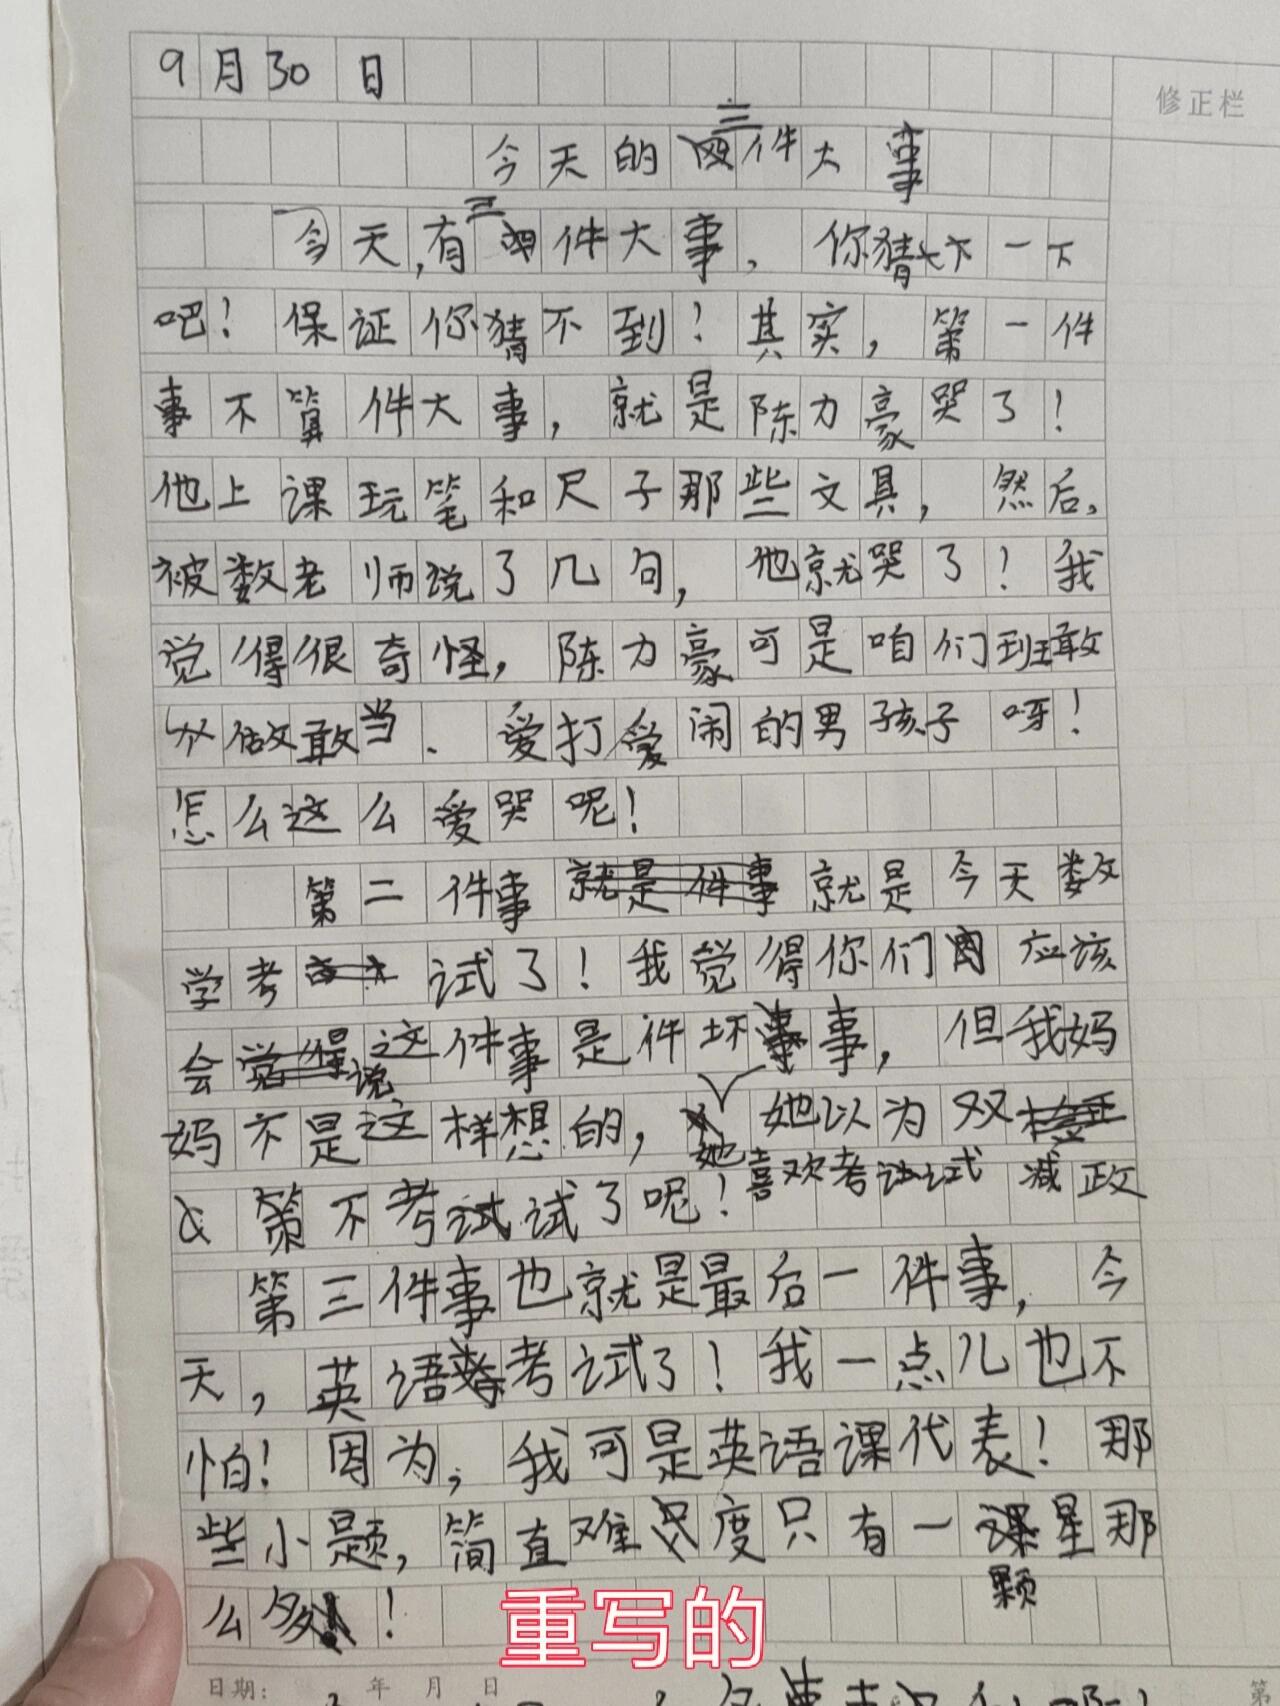 9月30日
修正栏
今天的三件大事
今天,有三件大事,你猜一下
吧!保证你猜不到!其实,第一件
事不算件大事,就是陈力豪哭了!
他上课玩笔和尺子那些文具,然后,
被数老师说了几句,他就哭了!我
觉得很奇怪,陈力豪可是咱们班敢
做敢当、爱打爱闹的男孩子呀!
怎么这么爱哭呢!
第二件事就是今天数
学考试了!我觉得你们应该
会说这件事是件坏事,但我妈
妈不是这样想的,她喜欢考试她以为双减政
策不考试了呢!
第三件事也就是最后一件事,今
天,英语考试了!我一点儿也不
怕!因为,我可是英语课代表!那
些小题,简直难度只有一颗星那
么多!
重写的
日期: 年 月 日
第